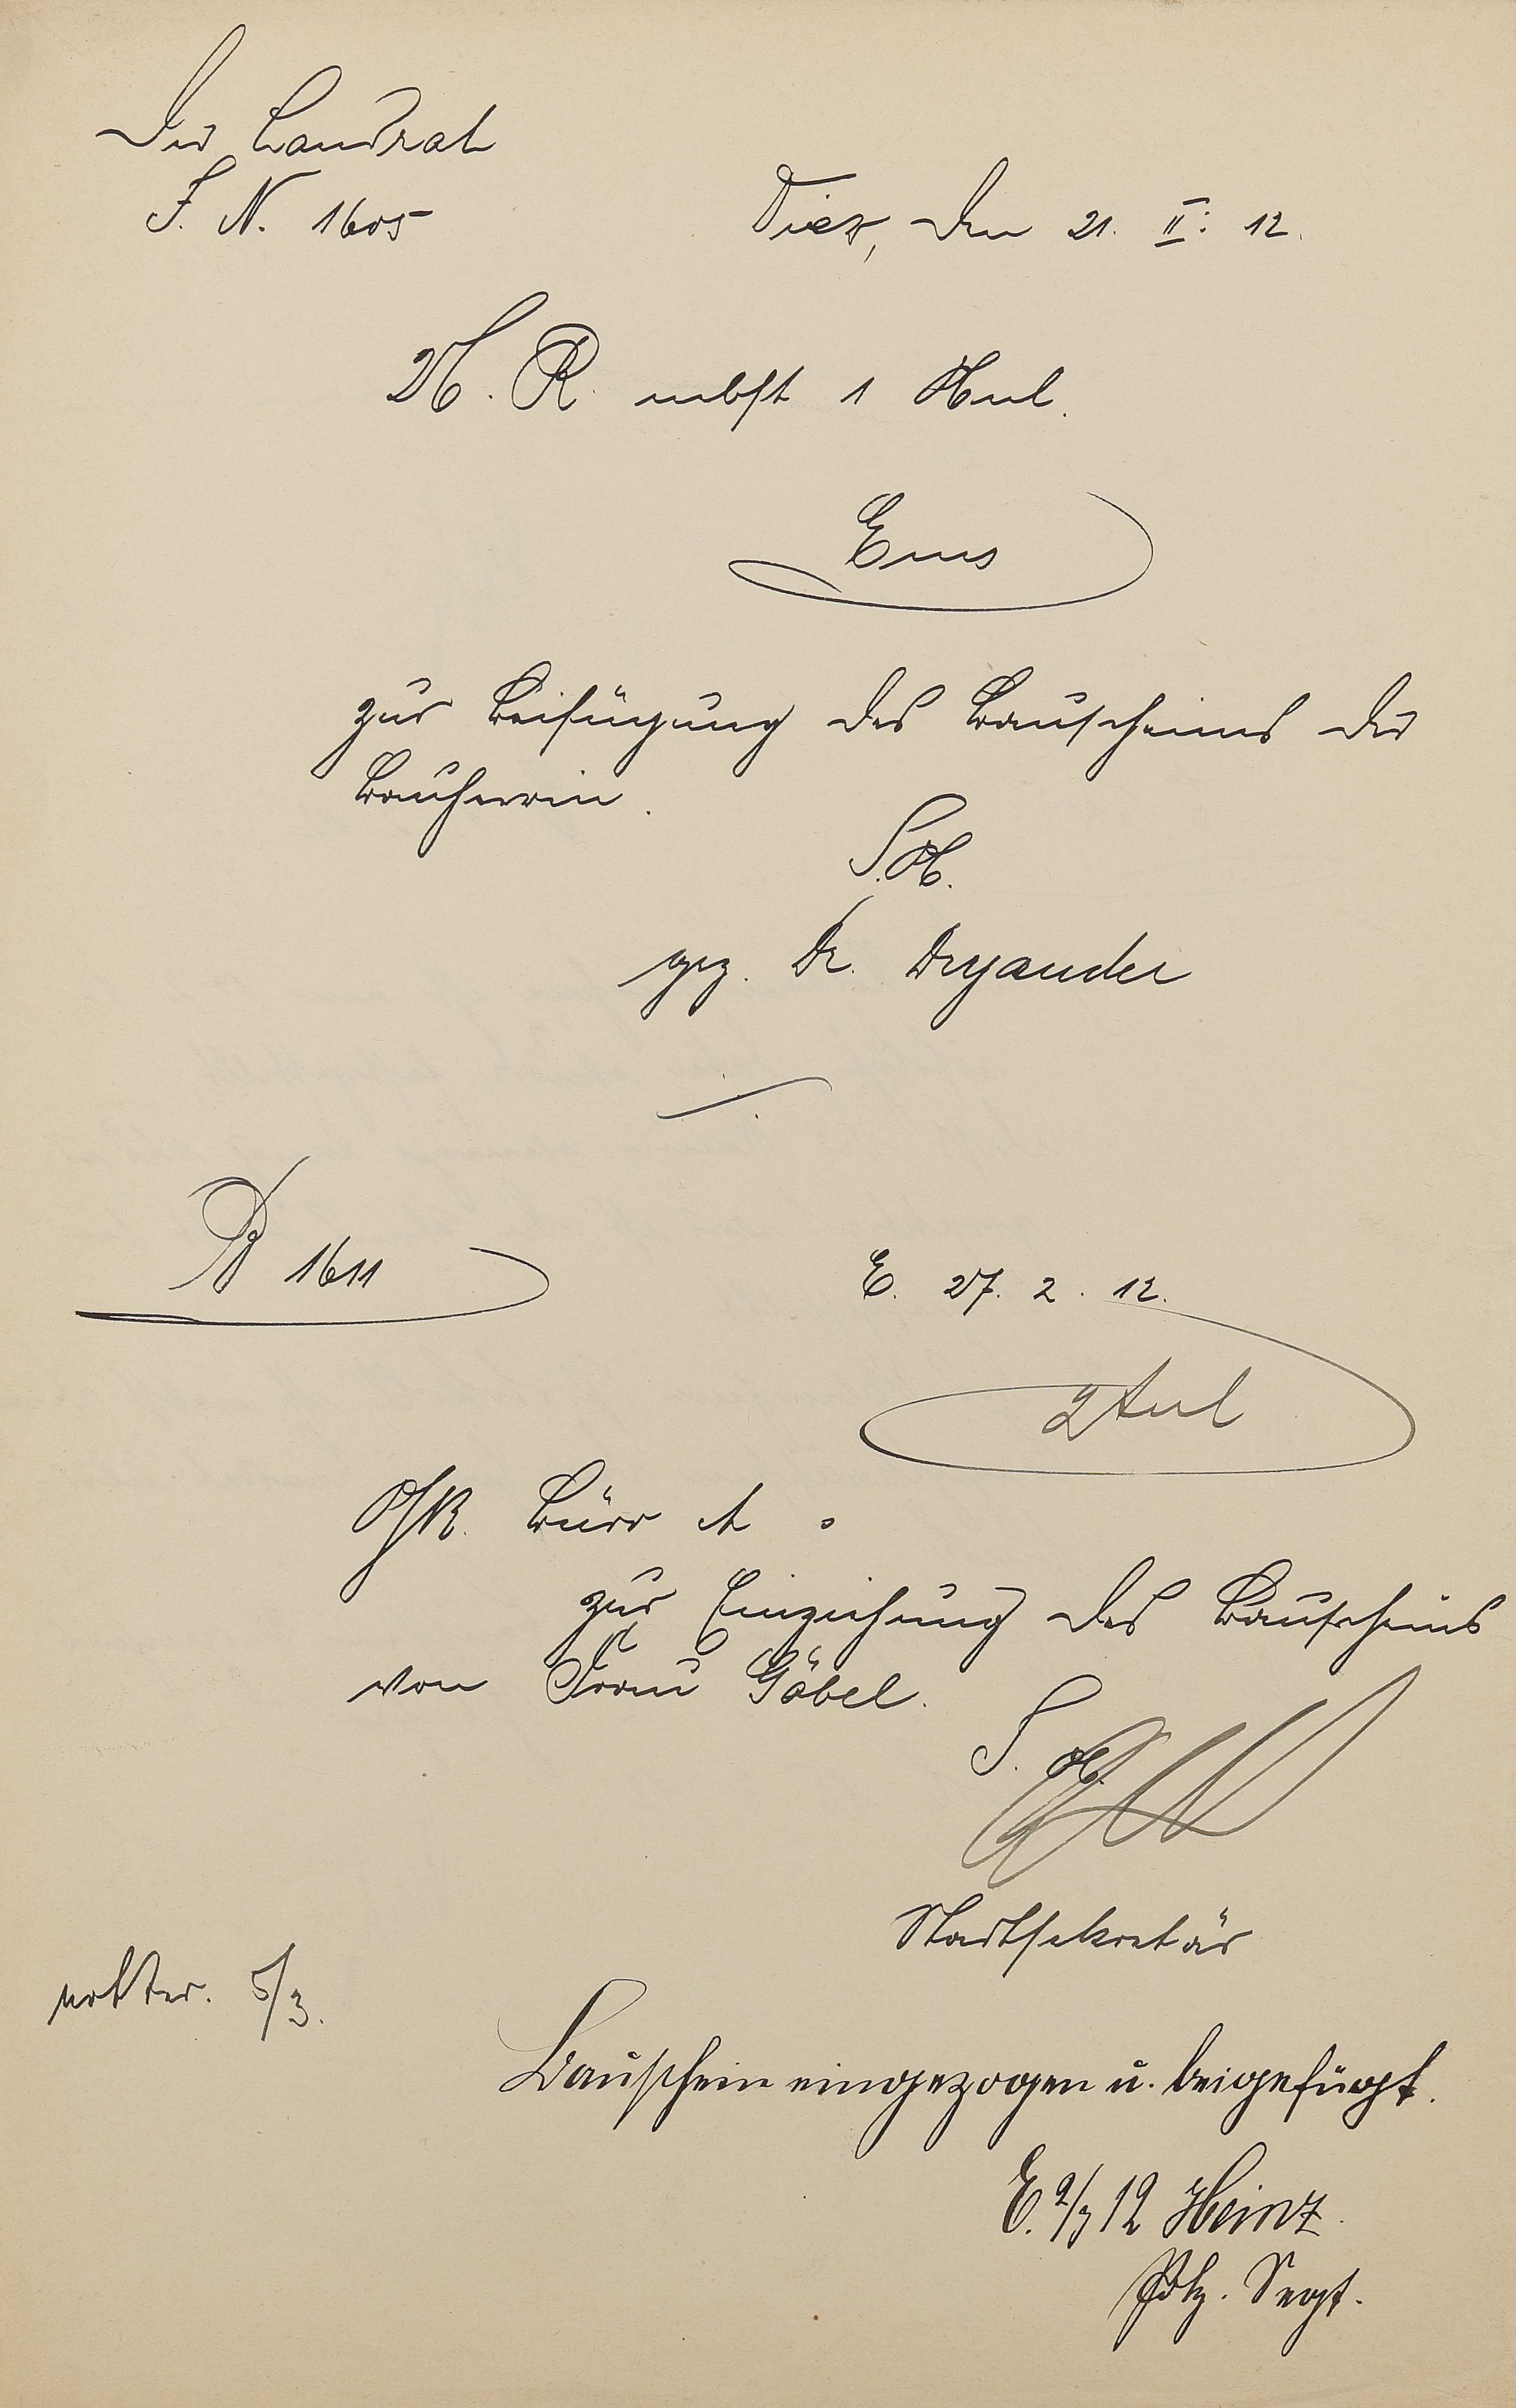 Der Landrat
J. N. 1605
Diez, den 21. II. 12.
U. R. nebst 1 Anl.
Ems
zur Beifügung des Bauscheins der
Bauherrin.
J. A.
gez. Dr. Dryander
B 1611
E. 27. 2. 12.
2 Anl
Büro A
zur Einziehung des Bauscheins
von Frau Göbel.
J. A.
Stadtsekretär
5/3.
Bauschein eingezogen u. beigefügt.
E. 9/3 12 Heinz
Polz. Sergt.